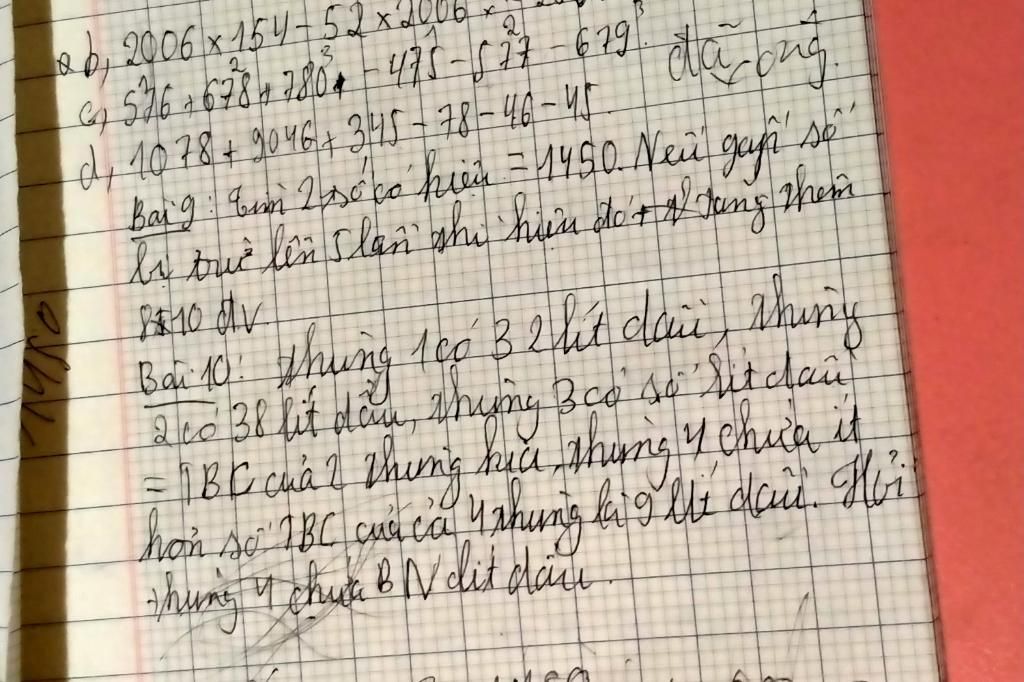 b, 2006 × 154 - 52 × 2006 ×
c, 576 + 678 + 780 - 475 - 577 - 679. đã
d, 1078 + 9046 + 345 - 78 - 46 - 45
Bài 9: Tìm 2 số có hiệu = 1450. Nếu gấp số
bị trừ lên 5 lần thì hiệu đó tăng thêm
10 đv
Bài 10: Thùng 1 có 32 lít dầu, thùng
2 có 38 lít dầu, thùng 3 có số lít dầu
= TBC của 2 thùng kia, thùng 4 chứa ít
hơn số TBC của cả 4 thùng là 9 lít dầu. Hỏi
thùng 4 chứa BN lít dầu.
1450